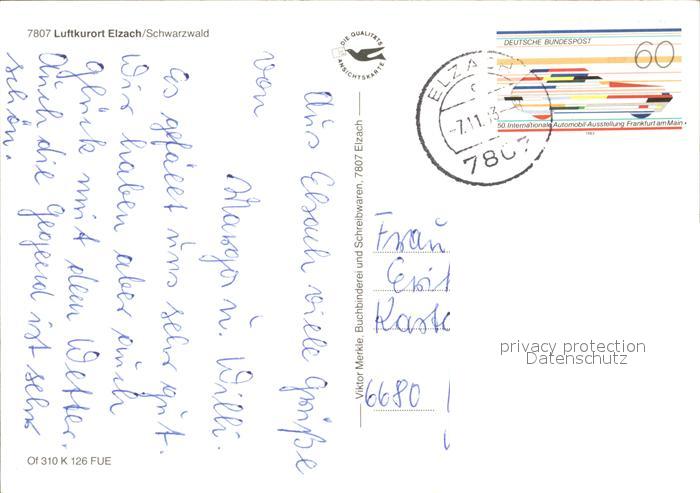 7807 Luftkurort Elzach/Schwarzwald
Aus Elzach viele Grüße
von
Margo u. Willi.
Es gefällt uns sehr gut.
Wir haben aber auch
glück mit dem Wetter.
Auch die Gegend ist sehr
schön.
Of 310 K 126 FUE
DIE QUALITÄTS
ANSICHTSKARTE
Viktor Merkle, Buchbinderei und Schreibwaren, 7807 Elzach
DEUTSCHE BUNDESPOST
60
50 Internationale Automobil-Ausstellung Frankfurt am Main
1983
ELZACH
c
-7.11.83
7807
Frau
Kaste
6680
privacy protection
Datenschutz